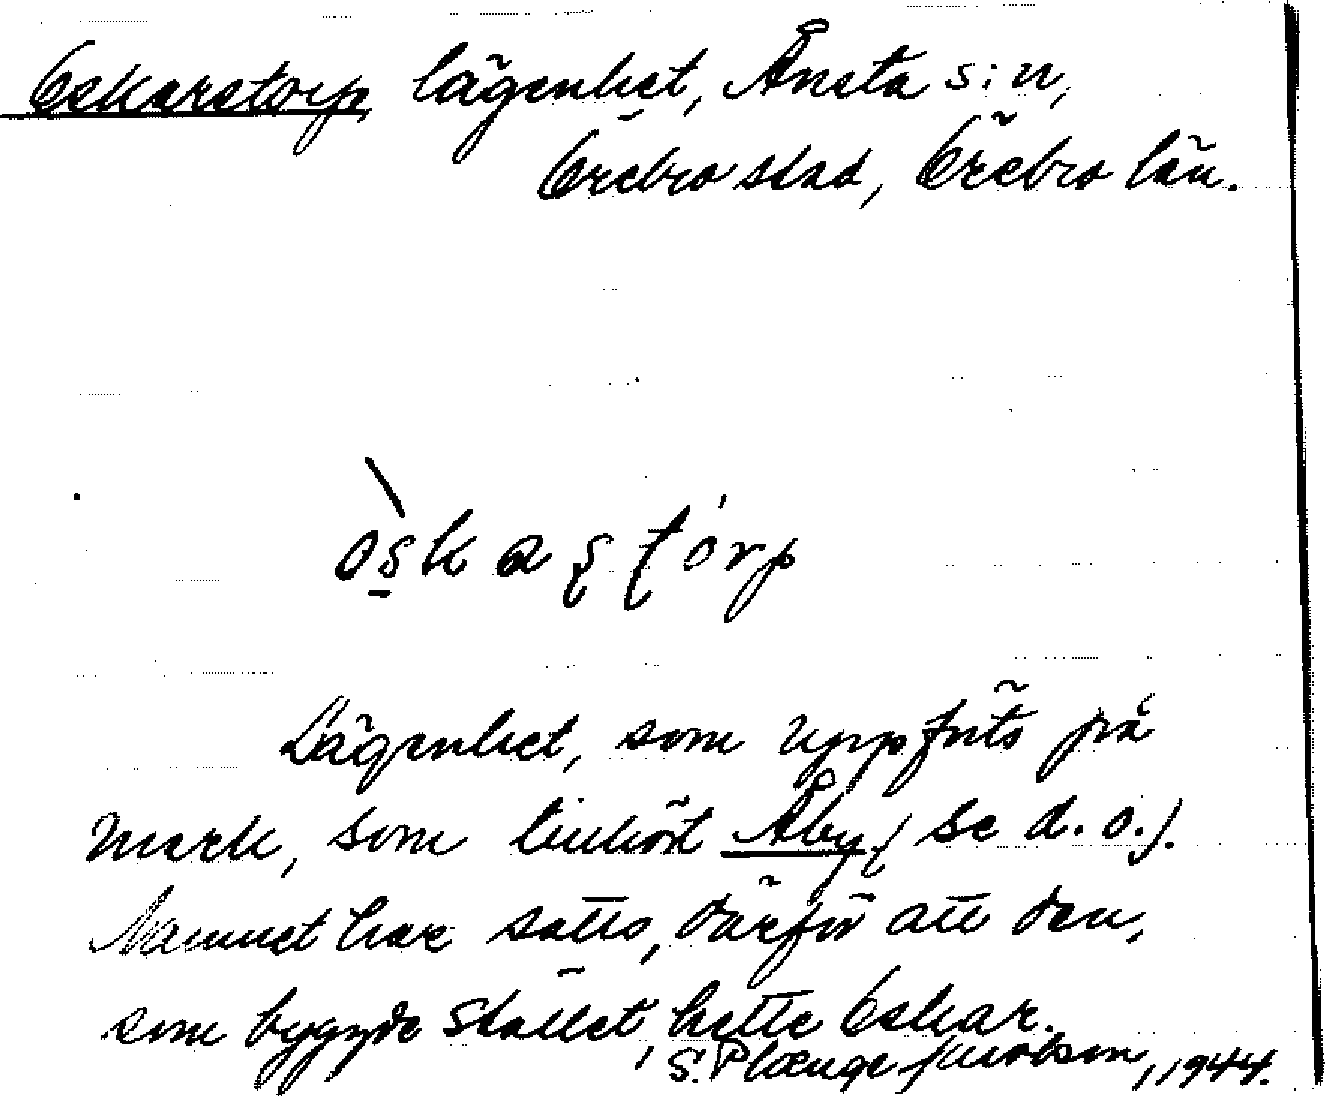 Oskarstorp, lägenhet, Ånsta s:n,
Örebro stad, Örebro län.
òskaʂʈórp
Lägenhet, som uppförts på
mark, som tillhört Åby (se d. o.).
Namnet har satts, därför att den,
som byggde stället, hette Oskar.
S. Plænge Jacobson, 1944.